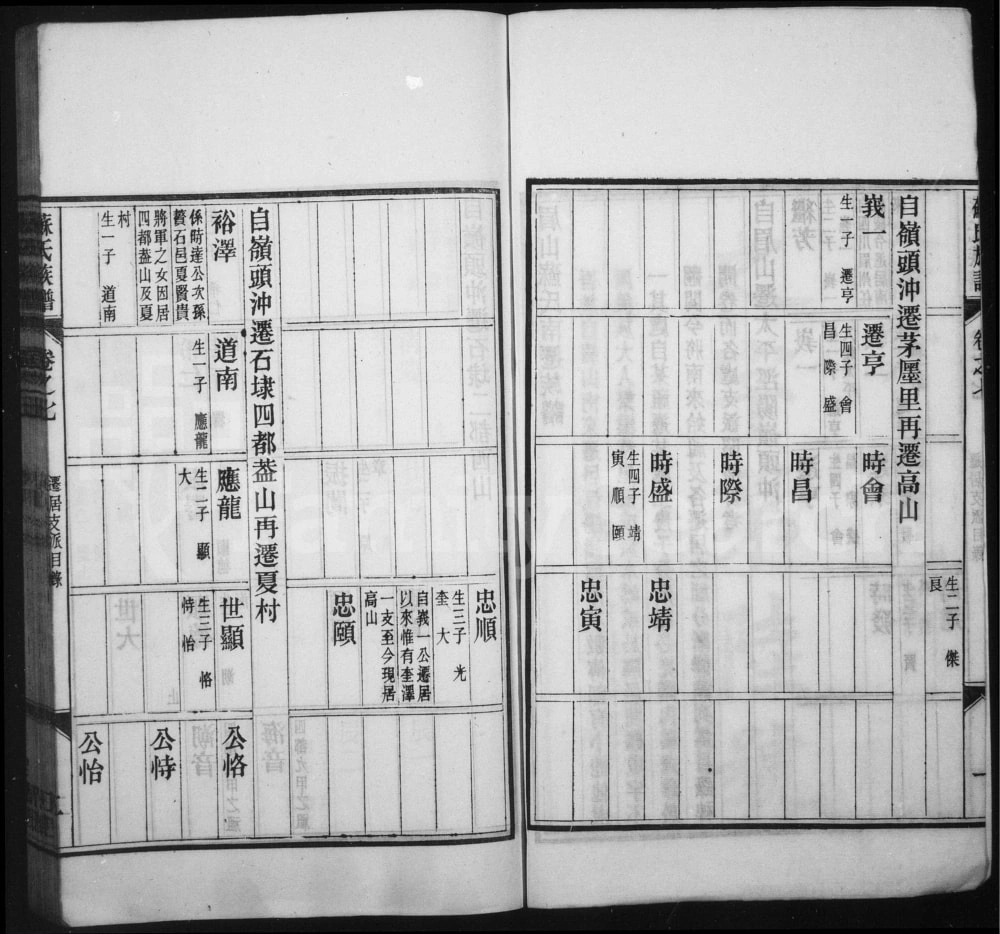 生二子 傑
良
自嶺頭沖遷茅㕓里再遷高山
峩一
生一子 遷亨
遷亨
生四子 會
昌 際 盛
時會
時昌
時際
時盛
生四子 靖
寅 順 頤
忠靖
忠寅
卷之七
一
忠順
生三子 光
奎 大
自峩一公遷居
以來惟有奎澤
一支至今現居
高山
忠頤
自嶺頭沖遷石埭四都葢山再遷夏村
裕澤
係時達公次孫
贅石邑夏賢貴
將軍之女因居
四都葢山及夏
村
生一子 道南
道南
生一子 應龍
應龍
生二子 顯
大
世顯
生三子 恪
恃 怡
公恪
公恃
公怡
蘇氏族譜
卷之七
遷居支派目錄